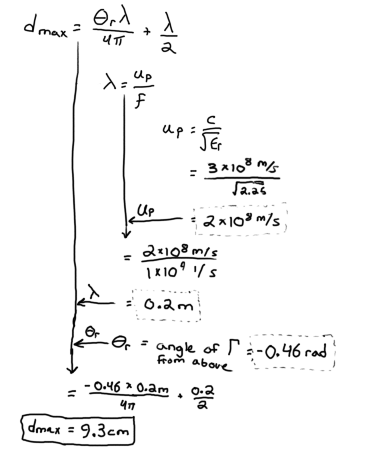 dmax = θrλ/4π + λ/2
λ = up/f
up = c/√εr
= 3×10⁸ m/s / √2.25
up = 2×10⁸ m/s
= 2×10⁸ m/s / 1×10⁹ 1/s
λ = 0.2m
θr θr = angle of Γ = -0.46 rad
from above
= -0.46 × 0.2m / 4π + 0.2/2
dmax = 9.3cm